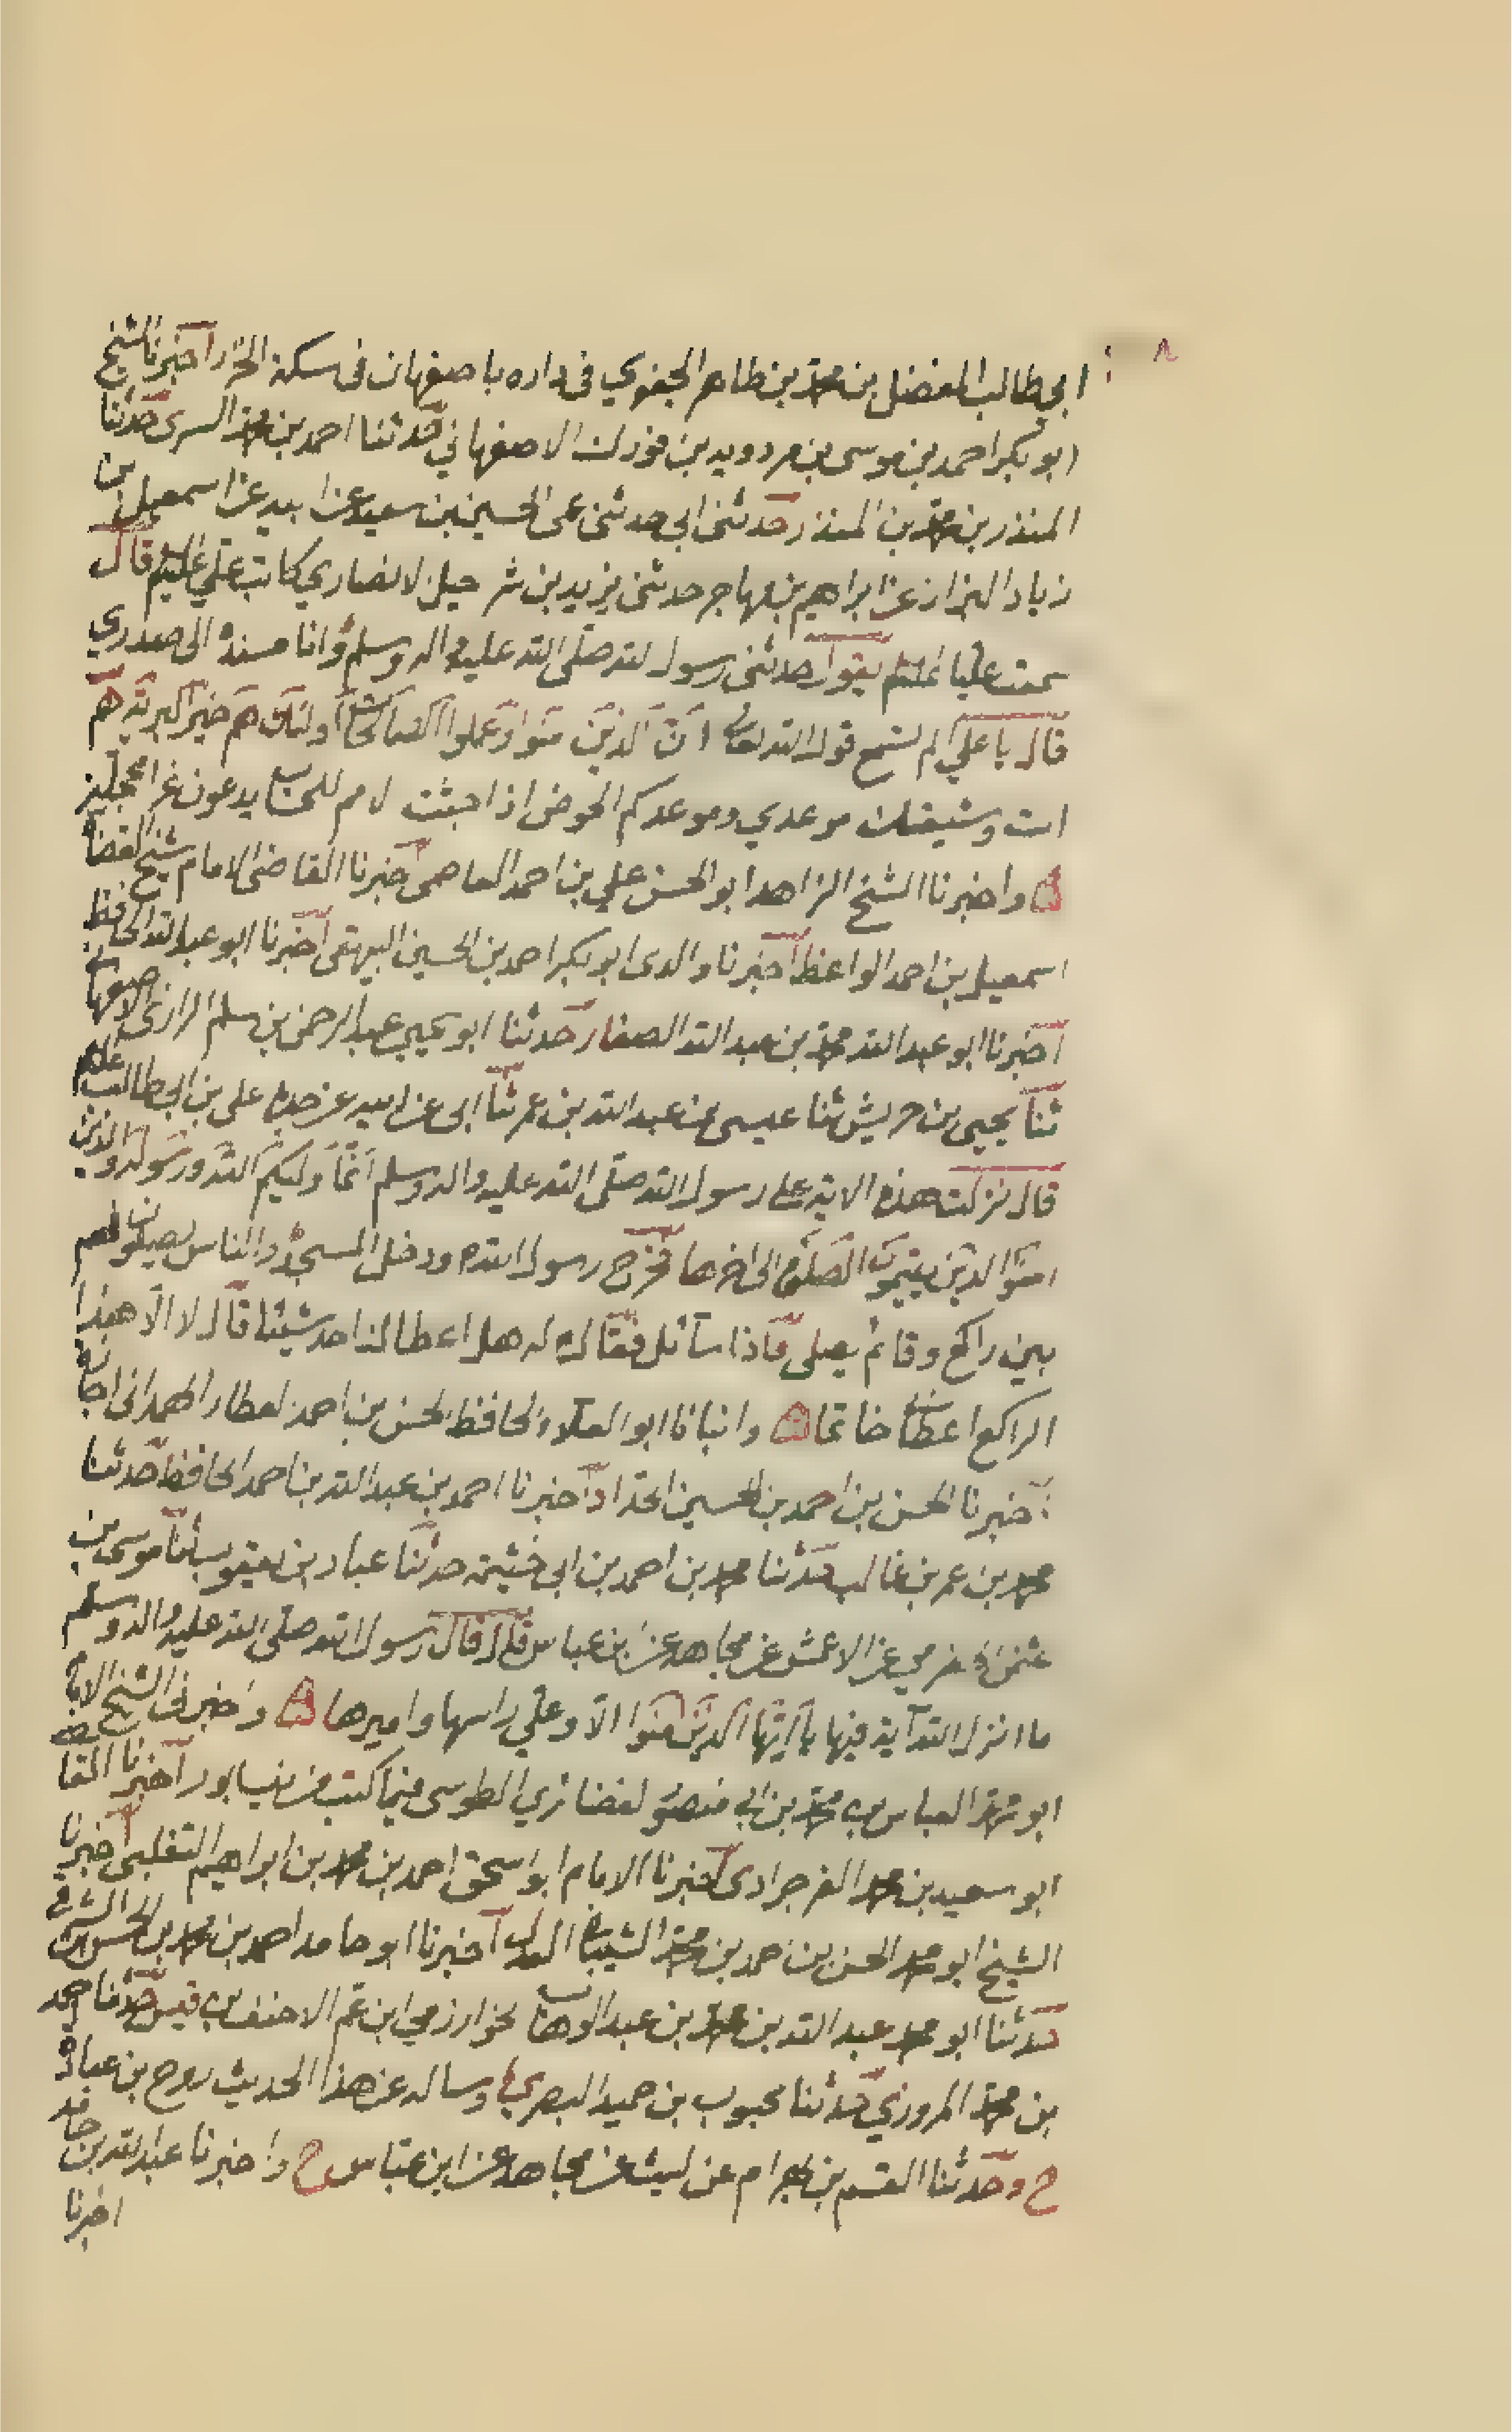 ابي طالب المفضل بن محمد بن طاهر الجعفري في داره باصفهان في سكة الخوز اخبرنا الشيخ
ابو بكر احمد بن موسى بن مردويه بن فورك الاصفهاني حدثنا احمد بن محمد السرى حدثنا
المنذر بن محمد بن المنذر حدثنى ابى حدثنى عمى الحسين بن سعيد عن ابيه عن اسمعيل بن
زياد البزاز عن ابراهيم بن مهاجر حدثنى يزيد بن شرحيل الانصاري كاتب علي عليه قال
سمعت عليا عليلم يقول حدثنى رسول الله صلى الله عليه واله وسلم وانا مسنده الى صدري
قال يا علي الم تسمع قول الله تعالى ان الذين امنوا وعملوا الصالحات اولئك هم خير البرية هم
انت وشيعتك موعدي وموعدكم الحوض اذا اجتثت الامم للحساب يدعون غر المحجلين
واخبرنا الشيخ الزاهد ابو الحسن علي بن احمد العاصمى اخبرنا القاضى الامام شيخ القضاة
اسمعيل بن احمد الواعظ اخبرنا والدى ابو بكر احمد بن الحسين البيهقى اخبرنا ابو عبد الله الحافظ
اخبرنا ابو عبد الله محمد بن عبد الله الصفار حدثنا ابو يحيى عبد الرحمن بن سلم الرازى الاصفهانى
ثنا يحيى بن حريش ثنا عيسى بن عبد الله بن عمر ثنا ابى عن ابيه عن جده على بن ابى طالب عليلم
قال نزلت هذه الاية على رسول الله صلى الله عليه واله وسلم انما وليكم الله ورسوله والذين
امنوا الذين يقيمون الصلوة الى اخرها فخرج رسول الله ودخل المسجد والناس يصلون فهم
بين راكع وقائم يصلى فاذا سائل فقال له هل اعطا لك احد شيئا قال لا الا هذا
الراكع اعطانى خاتما وانبانا ابو العلاء الحافظ الحسن بن احمد العطار الهمدانى اجازة
اخبرنا الحسن بن احمد بن الحسين الحداد اخبرنا احمد بن عبد الله بن احمد الحافظ حدثنا
محمد بن عمر بن غالب حدثنا محمد بن احمد بن ابى خثيمة حدثنا عباد بن يعقوب ثنا موسى بن
عثمن الحضرمي عن الاعمش عن مجاهد عن ابن عباس قال قال رسول الله صلى الله عليه واله وسلم
ما انزل الله آية فيها يا ايها الذين امنوا الا وعلي راسها واميرها واخبرنى الشيخ الامام
ابو محمد العباس بن محمد بن ابي منصور الغضائري الطوسى فيما كتب من نيسابور اخبرنا القاضى
ابو سعيد بن محمد الفرخرادى اخبرنا الامام ابو اسحق احمد بن محمد بن ابراهيم الثعلبى اخبرنا
الشيخ ابو محمد الحسن بن احمد بن محمد الشيبانى العدل اخبرنا ابو حامد احمد بن محمد بن الحسن بن الشرقى
حدثنا ابو محمد عبد الله بن محمد بن عبد الوهاب الخوارزمي ابن عم الاحنف بن قيس حدثنا احمد
بن محمد المروزي حدثنا محبوب بن حميد البصري وساله عن هذا الحديث روح بن عبادة
ح وحدثنا القسم بن بهرام عن ليث عن مجاهد عن ابن عباس ح واخبرنا عبد الله بن حامد
اخبرنا